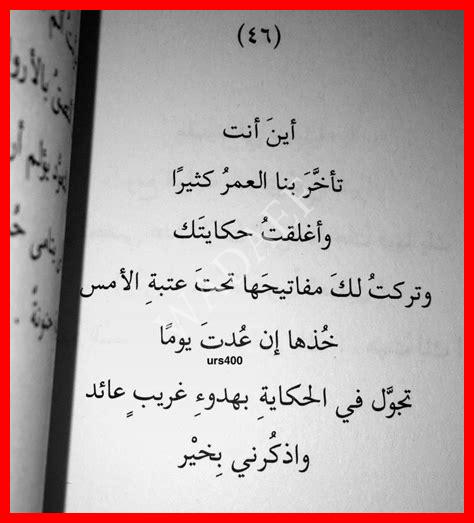 (٤٦)
أينَ أنت
تأخَّرَ بنا العمرُ كثيرًا
وأغلقتُ حكايتَك
وتركتُ لكَ مفاتيحَها تحتَ عتبةِ الأمس
خُذها إن عُدتَ يومًا
urs400
تجوَّل في الحكايةِ بهدوءِ غريبٍ عائد
واذكُرني بِخيْر